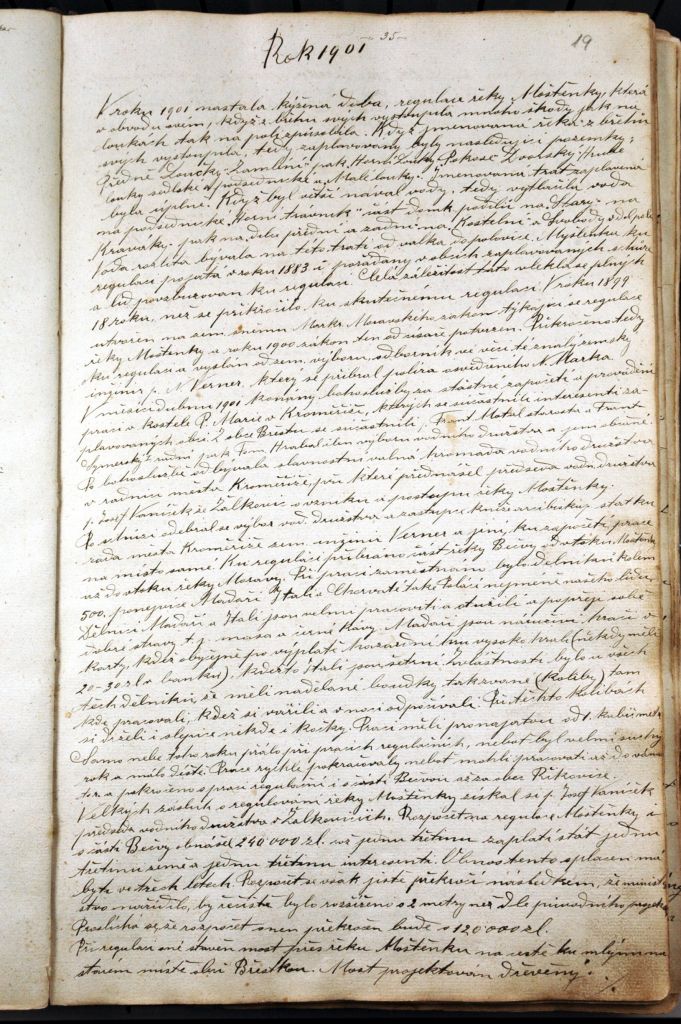 - 35 -
19
Rok 1901
V roku 1901 nastala kýžená doba, regulace řeky Moštěnky, která
v obvodu svém, když z břehu svých vystoupila mnoho škody jak na
loukách tak na poli způsobila. Když jmenovaná řeka z břehů
svých vystoupila, tedy zaplavovány byly následující pozemky:
Předně Loučky "Zamlýní" pak Horní Louky, Pokosě,
louky sedlské a podsednické a Malé louky. Jmenovaná trať zaplavená
byla úplně. Když byl větší nával vody, tedy vytlačila voda
na podsednické "Horní trávník" část na
pak na díle přední a zadní na Kostelní a Svobody v dol. poli
Voda rozlitá bývala na této trati od válka do polovice. Myšlenka ku
regulaci pojata v roku 1883 i pořádány v obcích zaplavovaných schůze
a lid povzbuzován ku regulaci. Celá záležitost tato vlekla se plných
18 roků, než se přikročilo ku skutečnému regulaci. V roku 1899
utvořen na zem. sněmu Mark. Moravského zákon týkající se regulace
řeky Moštěnky a roku 1900 zákon ten od císaře potvrzen. Přikročeno tedy
ku regulaci a vyslán od zem. výboru, odborník ve věci té znalý zemský
inžinír p. Verner, který se přibral polira osvědčeného N. Marka.
V měsíci dubnu 1901 konány bohoslužby za šťastné započetí a provádění
prací v kostele P. Marie v Kroměříži, kterých se súčastnili interesenti za-
plavovaných obcí. Z obce Břestu se súčastnili: Frant. starosta a Frant.
radní pak Tom. Hrabal člen výboru vodního družstva a jiní občané.
Po bohoslužbě odbývala slavnostní valná hromada vodního družstva
v radnici města Kroměříže, při které přednášel předseda vodn. družstva
p. Josef Vaníček ze Žalkovic o vzniku a postupu řeky Moštěnky.
Po schůzi odebral se výbor vod. družstva a zástupce knížearcibiskup. statku
rada města Kroměříže zem. inžinír Verner a jiní, ku započetí práce
na místo samé. Ku regulaci přibráno část řeky Bečvy, od vtoku Moštěnky
až do vtoku řeky Moravy. Při práci zaměstnáno bylo dělnictva kolem
500. ponejvíce Maďaři Itali a Chorvati také Poláci nejméně našeho lidu.
Dělníci Maďaři a Itali jsou velmi pracovití a otužilí a popřejí sobě
dobré stravy t.j. masa a černé kávy. Maďaři jsou náruživí hráči v
karty, kdež obyčejně po výplatě hazardní hru vysoko hráli (někdy měli
20-30 zl v banku), kdežto Itali jsou šetrní. Zvláštností bylo u všech
těch dělníků, že měli nadělané boudky takzvané (koliby) tam
kde pracovali, kdež si vařili a v noci odpočívali. Při těchto kolibách
si drželi i slepice někde i kočky. Práci měli pronajatou od 1. kubíj. metr
Samo nebe toho roku přálo při pracích regulačních, neboť byl velmi suchý
rok a málo deště. Práce rychle pokračovaly neboť mohli pracovati až do
a pokročeno s prací regulační i s části Bečvou až za obec Říkovice.
Velkých zásluh o regulování řeky Moštěnky získal si p. Josef Vaníček
předseda vodního družstva v Žalkovicích. Rozpočet na regulace Moštěnky i
s částí Bečvy obnáší 240'000 zl. až jednu třetinu zaplatí stát jednu
třetinu země a jednu třetinu interesenti. Obnos tento splacen má
býti ve třech letech. Rozpočet se však jistě překročí následkem, že minister-
stvo nařídilo, by řečiště bylo rozšířeno o 2 metry než dle původního projektu
Proslýchá se, že rozpočet onen překročen bude o 120'000 zl.
Při regulaci oné staven most přes řeku Moštěnku na cestě ku mlýnu na
starém místě obcí Břestkou. Most projektován dřevěný.